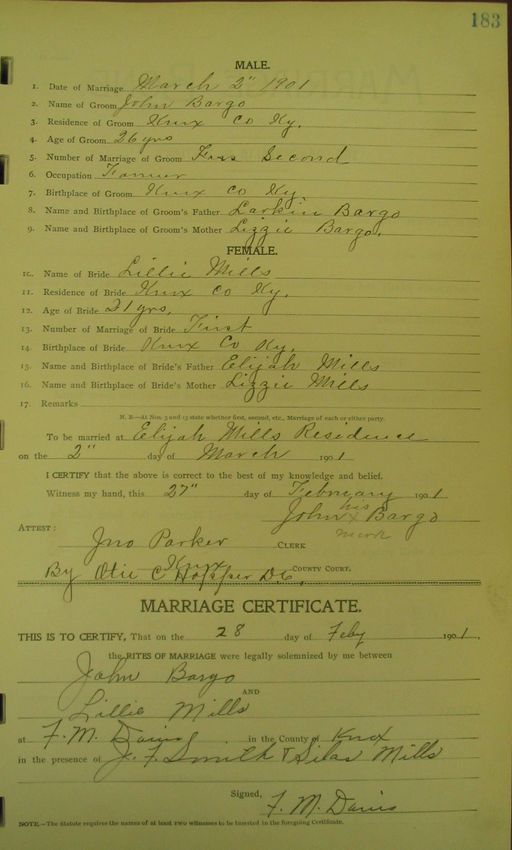 183
MALE.
1. Date of Marriage March 2" 1901
2. Name of Groom John Bargo
3. Residence of Groom Knox Co Ky.
4. Age of Groom 26 yrs
5. Number of Marriage of Groom Second
6. Occupation Farmer
7. Birthplace of Groom Knox Co Ky
8. Name and Birthplace of Groom's Father Larkin Bargo
9. Name and Birthplace of Groom's Mother Lizzie Bargo.
FEMALE.
10. Name of Bride Lillie Mills
11. Residence of Bride Knox Co Ky.
12. Age of Bride 21 yrs,
13. Number of Marriage of Bride First
14. Birthplace of Bride Knox Co Ky.
15. Name and Birthplace of Bride's Father Elijah Mills
16. Name and Birthplace of Bride's Mother Lizzie Mills
17. Remarks
N. B.—At Nos. 5 and 13 state whether first, second, etc., Marriage of each or either party.
To be married at Elijah Mills Residence
on the 2" day of March 1901
I CERTIFY that the above is correct to the best of my knowledge and belief.
Witness my hand, this 27" day of February 1901
his
John x Bargo
mark
ATTEST:
Jno Parker CLERK
Knox COUNTY COURT.
By Otie C Hopper D.C.
MARRIAGE CERTIFICATE.
THIS IS TO CERTIFY, That on the 28 day of Feby 1901.,
the RITES OF MARRIAGE were legally solemnized by me between
John Bargo
AND
Lillie Mills
at F. M. Davis in the County of Knox
in the presence of J. F. Smith & Silas Mills
Signed, F. M. Davis
NOTE.—The statute requires the names of at least two witnesses to be inserted in the foregoing Certificate.